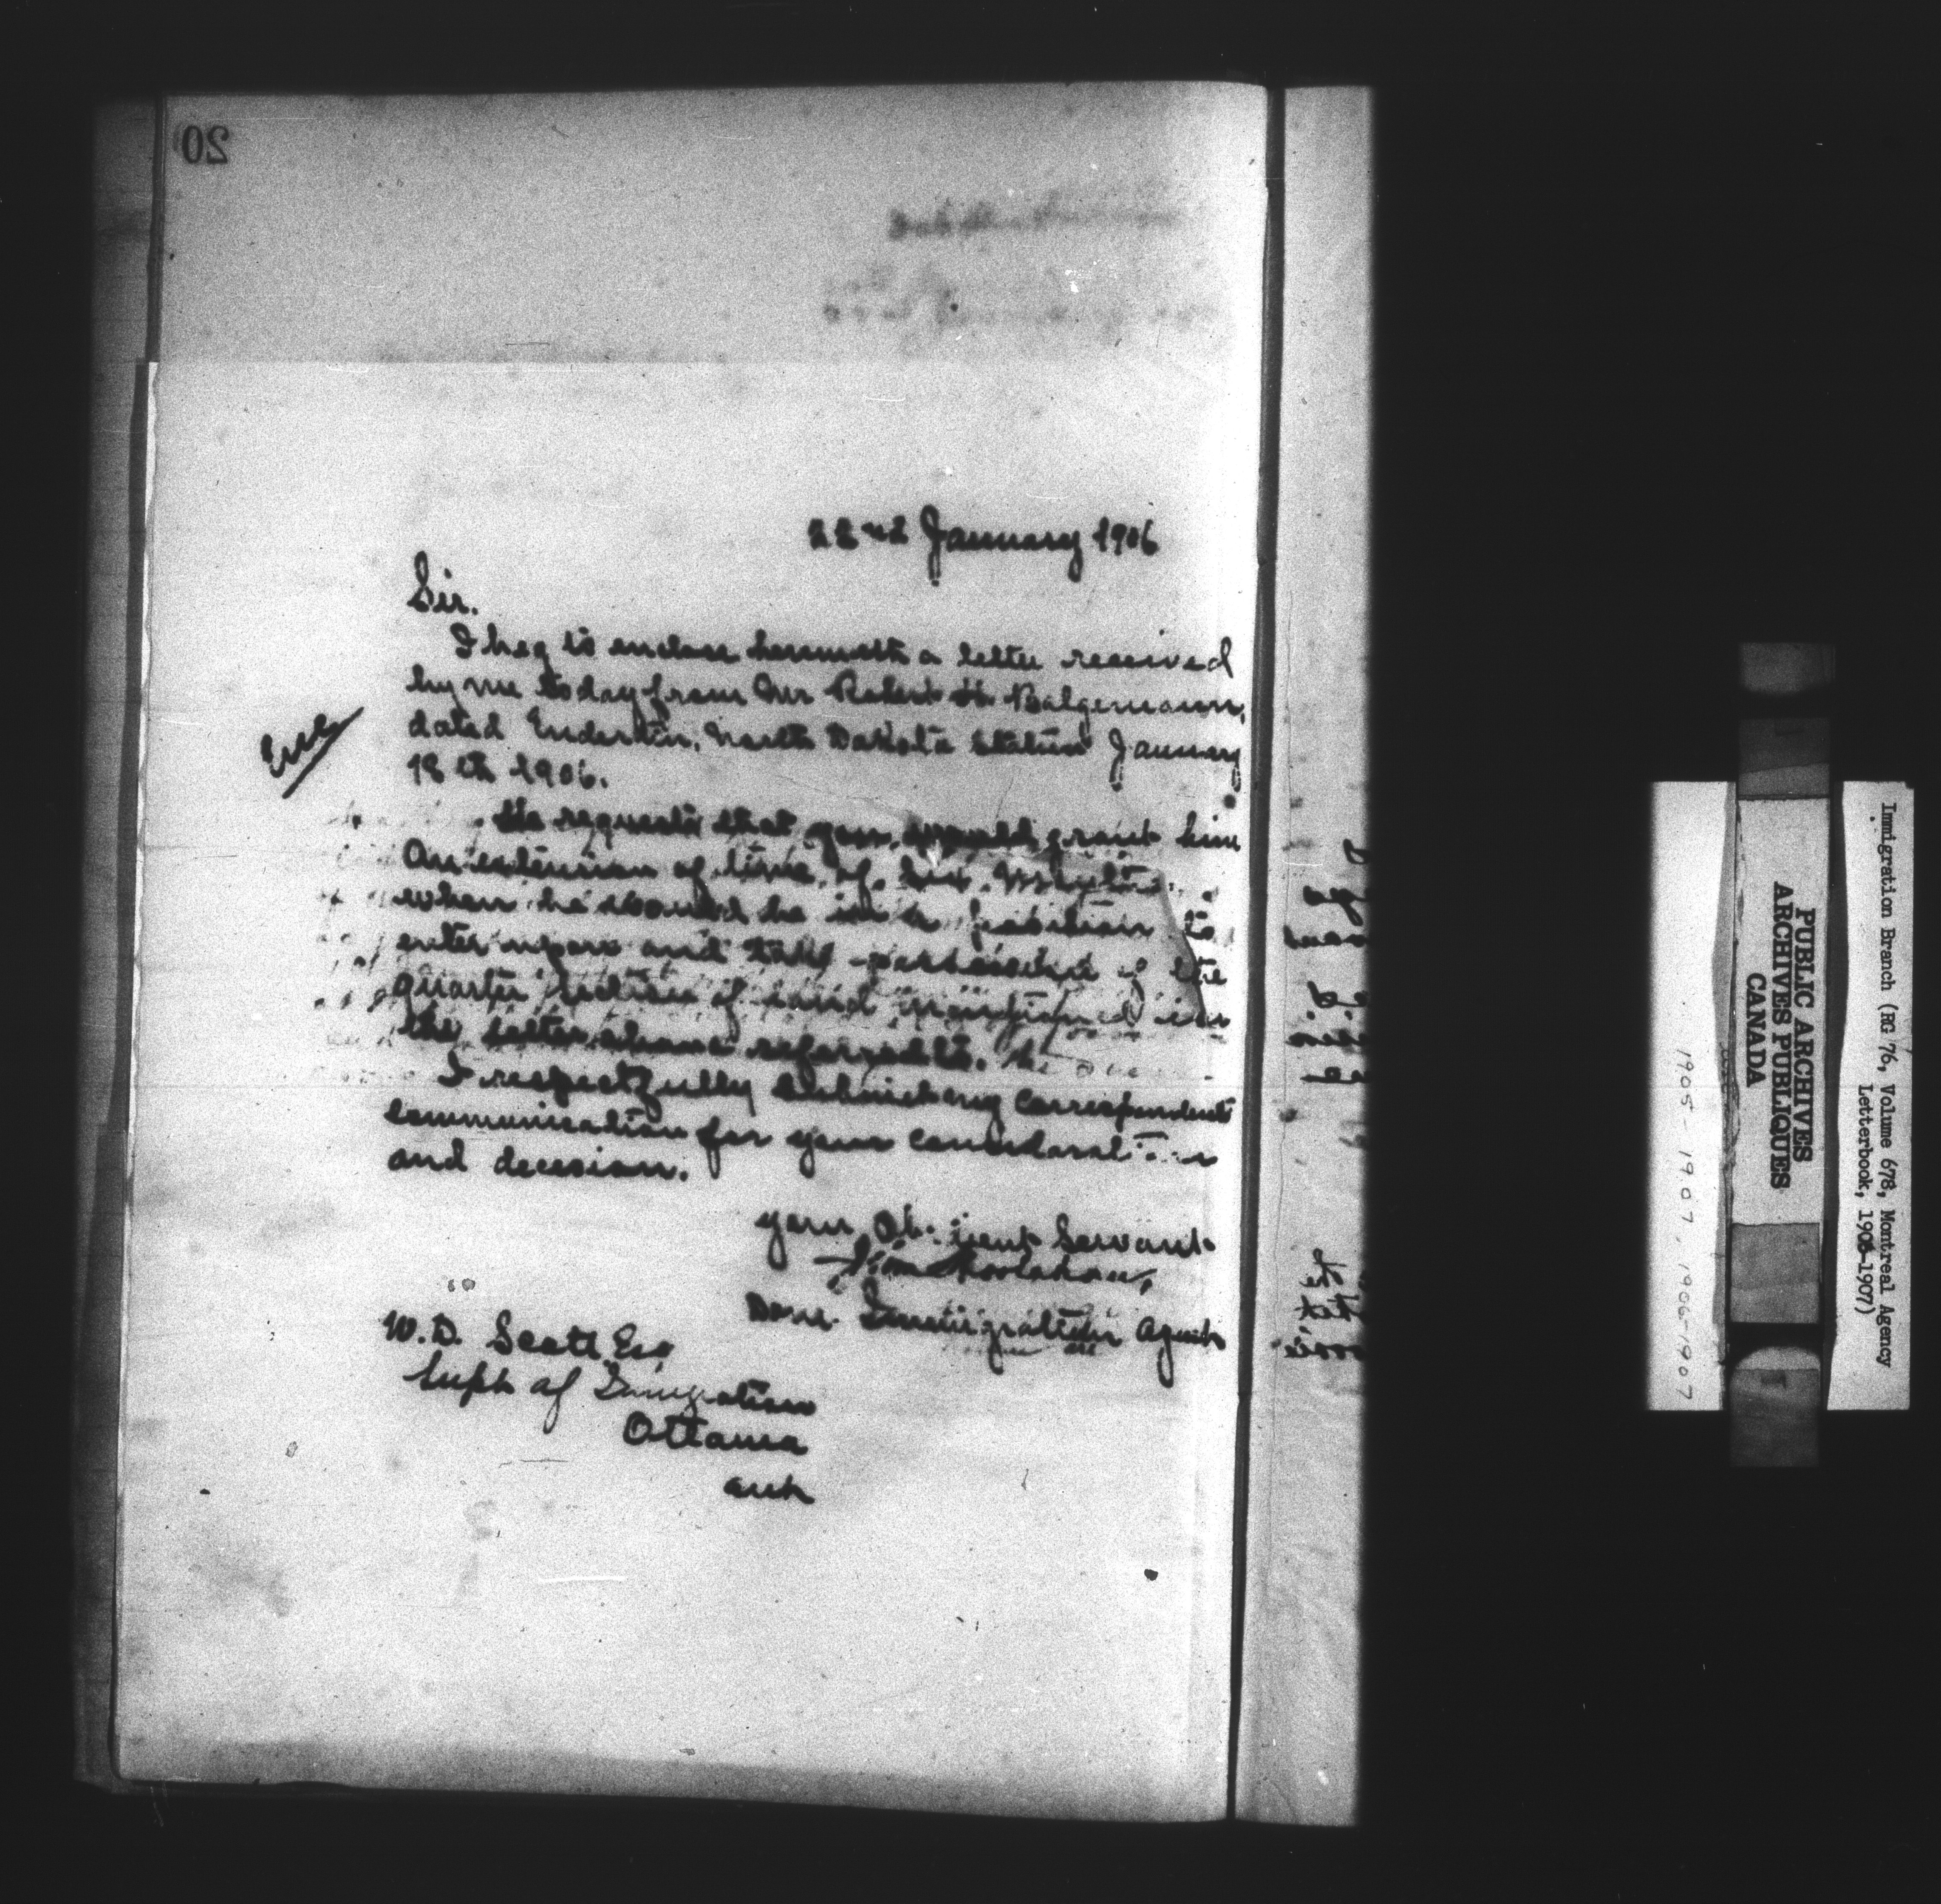 20
22nd January 1906
Sir.
I beg to enclose herewith a letter received
by me today from Mr Robert H. Balgemann,
dated Enderlin, North Dakota States January
18th 1906.
Enc
He requests that you would grant him
An extension of time of six months
when he would be in a position to
enter upon and take possession of the
quarter section of land mentioned in
the letter above referred to.
I respectfully submit my correspondents
communication for your
and decesion.
your Servant
Dom. Immigration Agent
W.D. Scott Esq
Supt of Imigration
Ottawa
PUBLIC ARCHIVES
ARCHIVES PUBLIQUES
CANADA
Immigration Branch (RG 76, Volume 678, Montreal Agency
Letterbook, 1905-1907)
1905-1907, 1906-1907